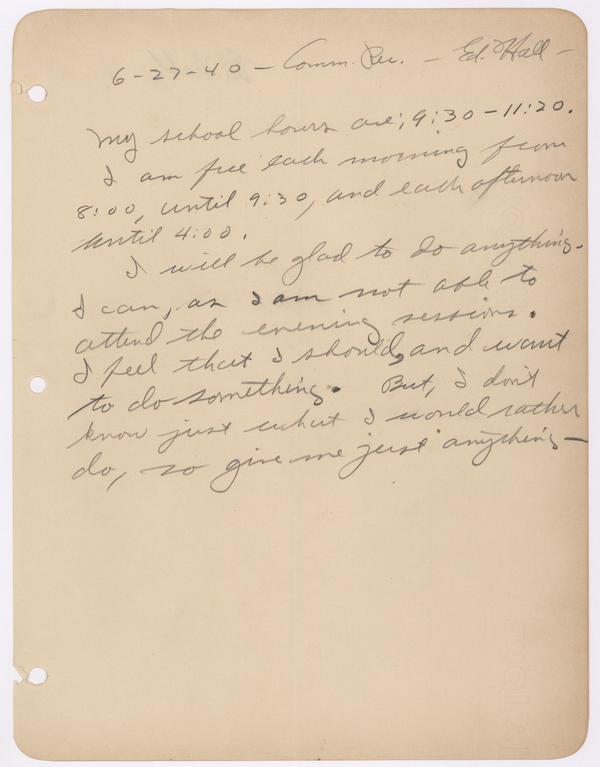 6-27-40 — Comm. Rec. — Ed. Hall —
My school hours are; 9:30 - 11:20.
I am free each morning from
8:00, until 9:30, and each afternoon
until 4:00.
I will be glad to do anything
I can, as I am not able to
attend the evening sessions.
I feel that I should, and want
to do something. But, I don't
know just what I would rather
do, so give me just anything —